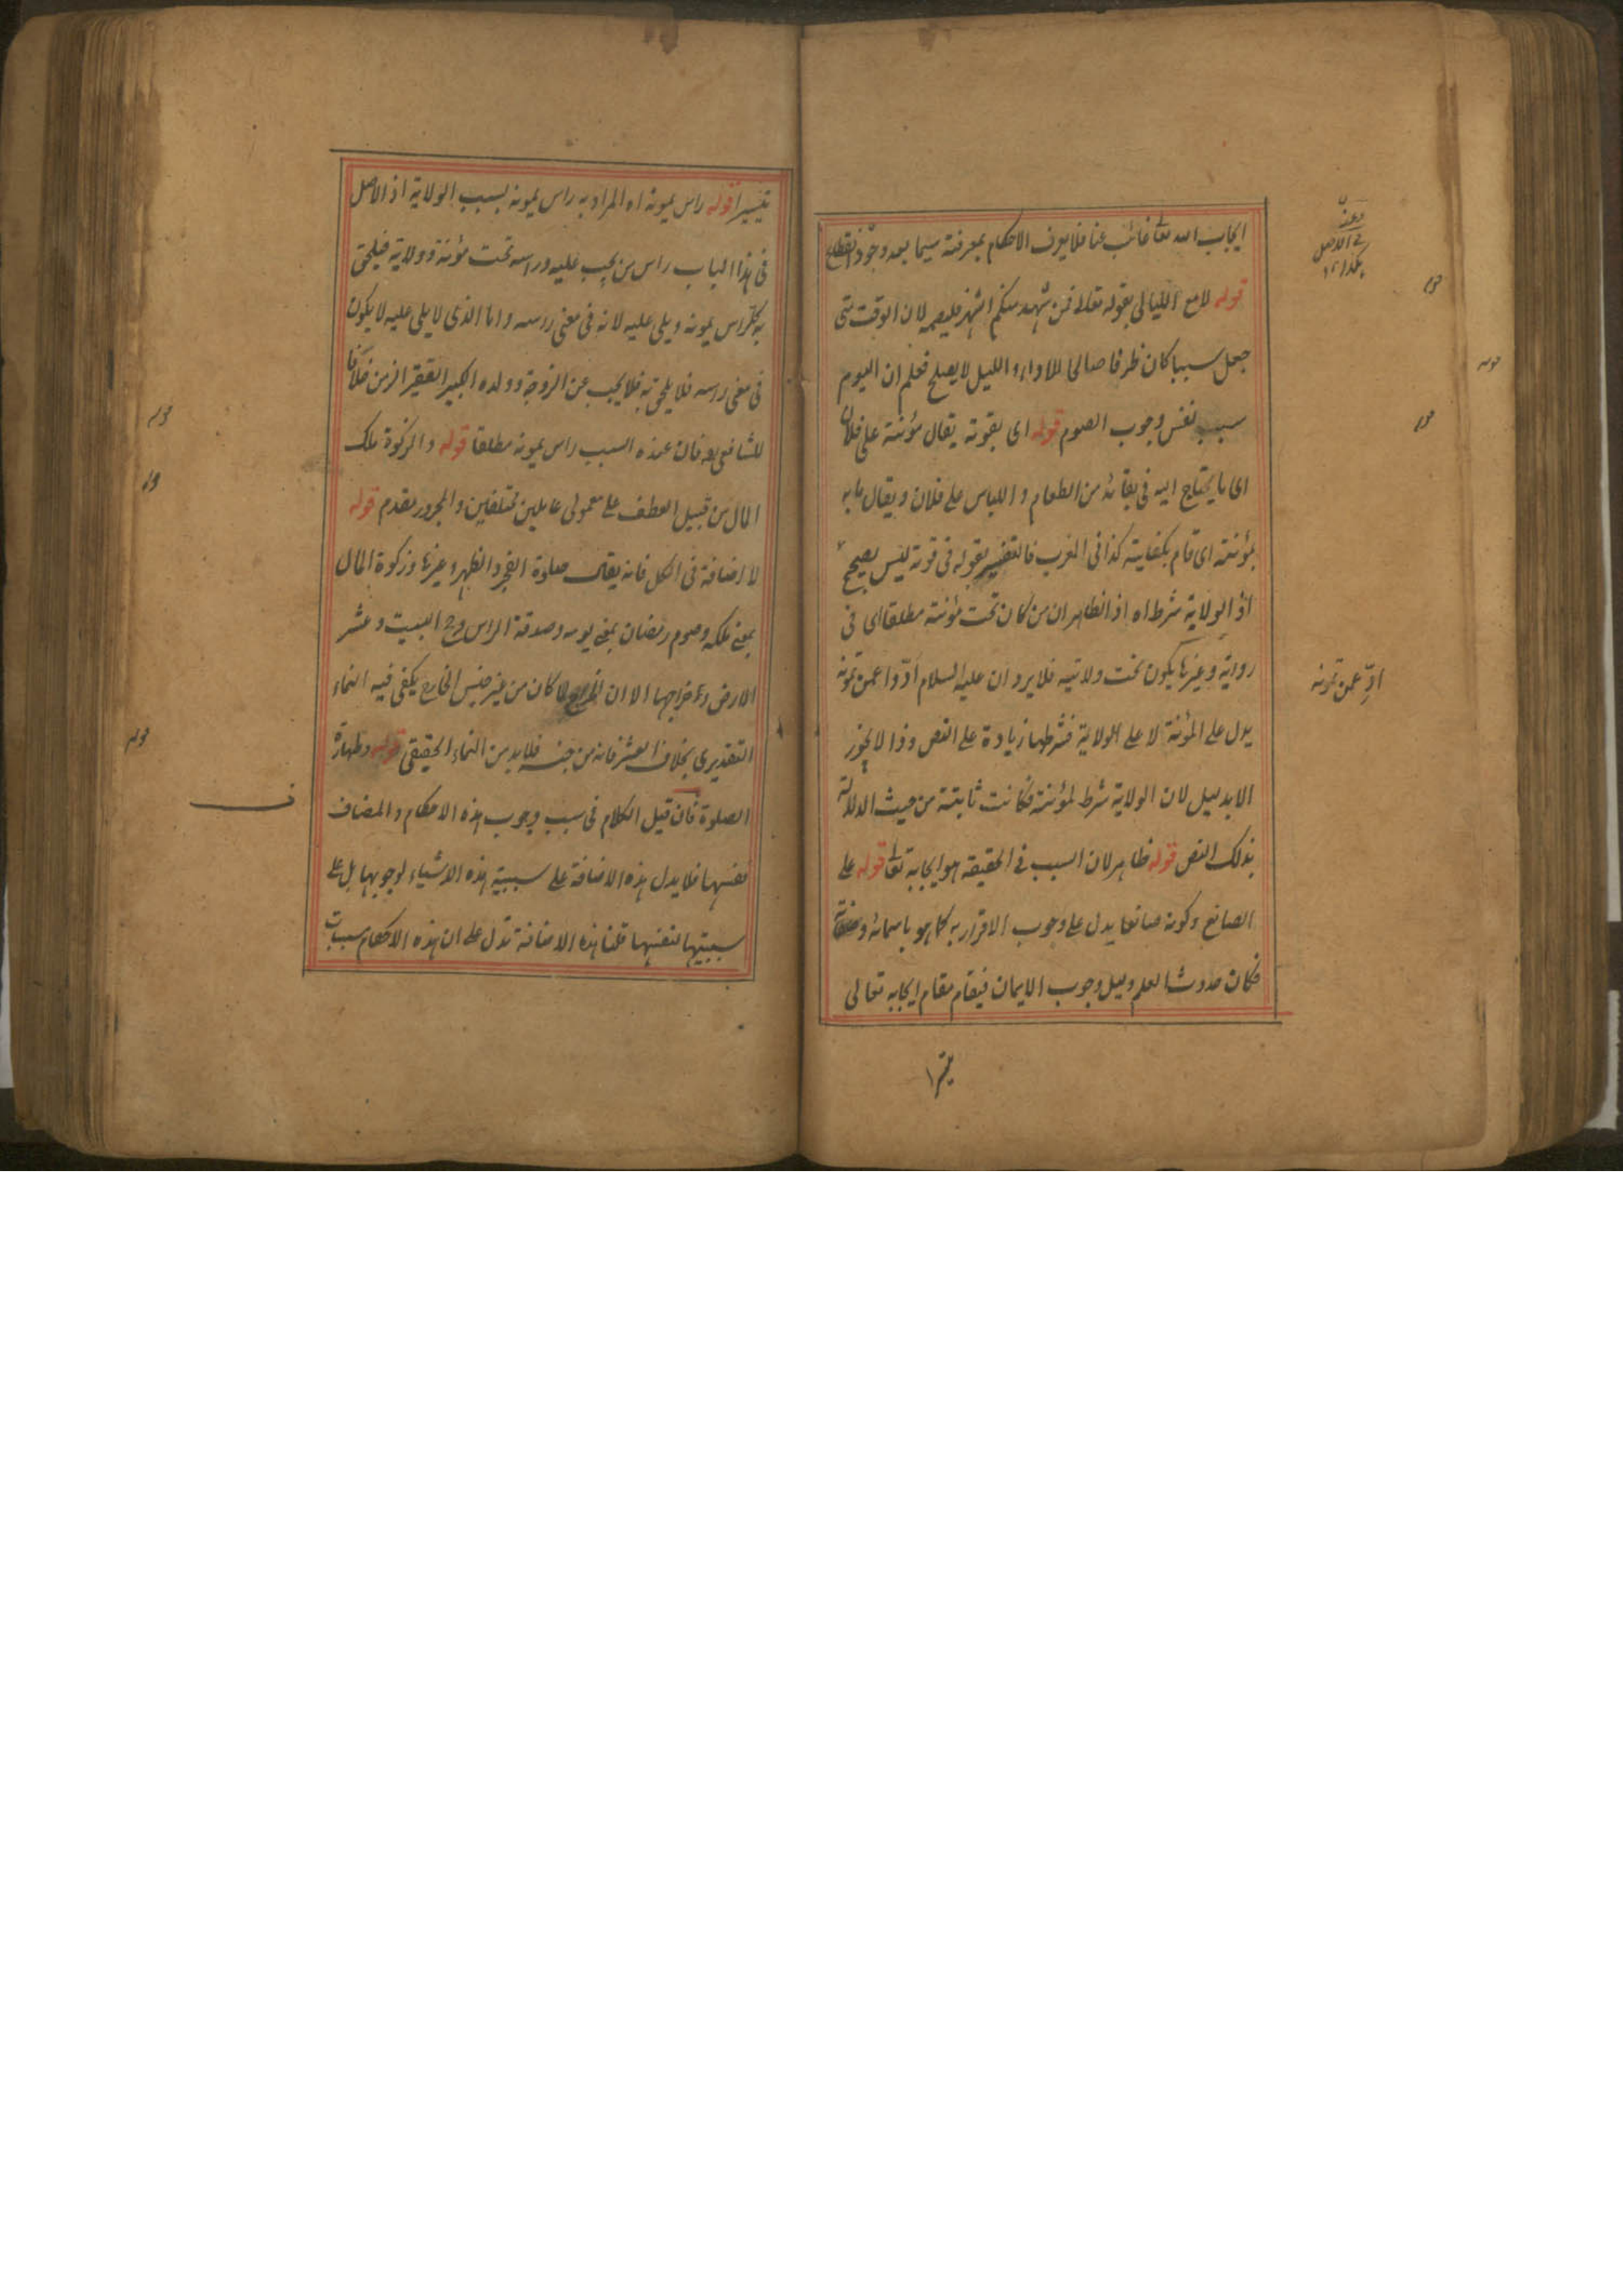 ايجاب الله تعا غائب عنا فلا يعرف الاحكام بمعرفته سيما بعد وجود انقطاع
قوله لا مع الليالى بقوله تعالى فمن شهد منكم الشهر فليصمه لان الوقت متى
جعل سببا كان ظرفا صالحا للاداء والليل لا يصلح فعلم ان اليوم
سبب نفس وجوب الصوم قوله اى بقوته يقال مؤنته على فلان
اى ما يحتاج اليه فى بقائه من الطعام واللباس على فلان ويقال مانه
بمؤنته اى قام بكفايته كذا فى المغرب فالتفسير بقوله فى قوته ليس بصحيح
اذ الولاية شرط اه اذ الظاهر ان من كان تحت مؤنته مطلقا اى فى
رواية وغيرها يكون تحت ولايته فلا يرد ان عليه السلام ادّوا عمن تمونه
يدل على المؤنة لا على الولاية فشرطها زيادة على النص وذا لا يجوز
الا بدليل لان الولاية شرط لمؤنته فكانت ثابتة من حيث الدلالة
بذلك النص قوله ظاهر لان السبب فى الحقيقة هو ايجابه تعا قوله على
الصانع وكونه صانعا يدل على وجوب الاقرار به كما هو باسمائه وصفاته
فكان حدوث العلم دليل وجوب الايمان فيقام مقام ايجابه تعالى
تيسيرا
فى الاصل
هكذا ١٢
قوله
قوله
قوله
ادّ عمن تمونه
تيسيرا قوله راس يمونه اه المراد به راس يمونه بسبب الولاية اذ الاصل
فى هذا الباب راس من يجب عليه وراسه تحت مؤنته وولايته فيلحق
به كل راس يمونه ويلى عليه لانه فى معنى راسه واما الذى لا يلى عليه لا يكون
فى معنى راسه فلا يلحق به فلا يجب عن الزوجة وولده الكبير الفقير الزمن خلافا
للشافعى رح فان عنده السبب راس يمونه مطلقا قوله والزكوة ملك
المال من قبيل العطف على معمولى عاملين مختلفين والمجرور مقدم قوله
لاضافة فى الكل فانه يقال صلوة الفجر والظهر وغيرها وزكوة المال
بمعنى ملكه وصوم رمضان بمعنى يومه وصدقة الراس وحج البيت وعشر
الارض وخراجها الا ان الخراج لما كان من غير جنس الخارج يكفى فيه النماء
التقديرى بخلاف العشر فانه من جنسه فلا بد من النماء الحقيقى قوله وطهارة
الصلوة فان قيل الكلام فى سبب وجوب هذه الاحكام والمضاف
نفسها فلا يدل هذه الاضافة على سببية هذه الاشياء لوجوبها بل على
سببيتها لنفسها قلنا هذه الاضافة تدل على ان هذه الاحكام مسببات
قوله
قوله
قوله
ف